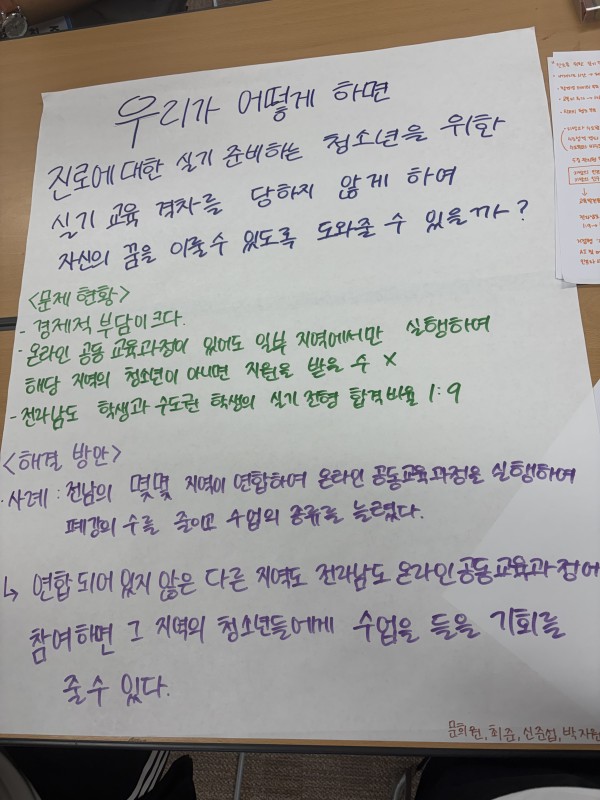 우리가 어떻게 하면
진로에 대한 실기 준비하는 청소년을 위화
실기 교육 격차를 당하지 않게 하여
자신의 꿈을 이룰 수 있도록 도와줄 수 있을까?
<문제 현황>
- 경제적 부담이 크다.
- 온라인 공동 교육과정이 있어도 일부 지역에서만 실행하여
해당 지역의 청소년이 아니면 지원을 받을 수 X
- 전라남도 학생과 수도권 학생의 실기 전형 합격 비율 1:9
<해결 방안>
· 사례 : 전남의 몇몇 지역이 연합하여 온라인 공동교육과정을 실행하여
폐강의 수를 줄이고 수업의 종류를 늘렸다.
↳ 연합 되어 있지 않은 다른 지역도 전라남도 온라인 공동교육과정에
참여하면 그 지역의 청소년들에게 수업을 들을 기회를
줄 수 있다.
문희원, 최준, 신준섭, 박지원